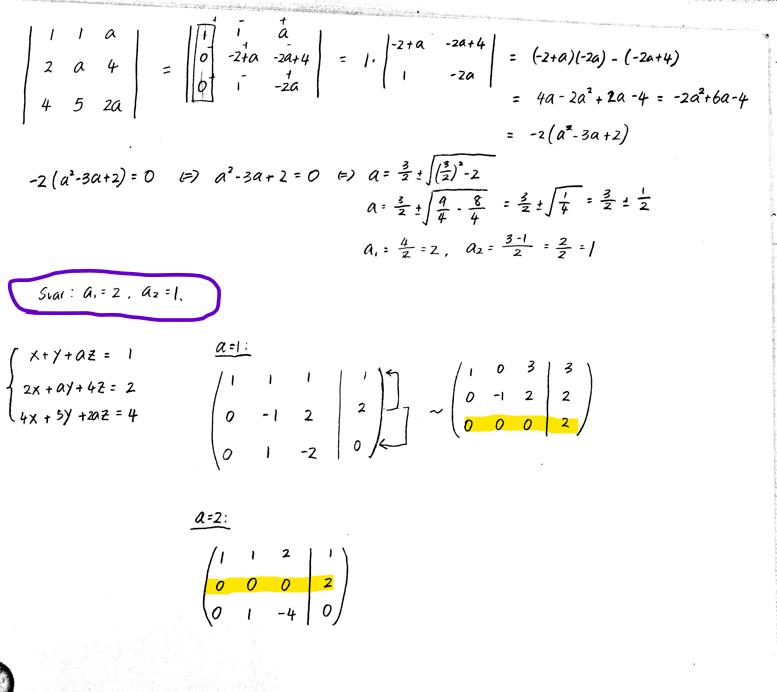 | 1 1 a |   | 1 1 a |
| 2 a 4 | = | 0 -2+a -2a+4 | = 1· | -2+a -2a+4 | = (-2+a)(-2a) - (-2a+4)
| 4 5 2a |   | 0 1 -2a |   | 1 -2a |
= 4a - 2a² + 2a - 4 = -2a² + 6a - 4
= -2(a² - 3a + 2)
-2(a² - 3a + 2) = 0 ⇔ a² - 3a + 2 = 0 ⇔ a = 3/2 ± √((3/2)² - 2)
a = 3/2 ± √(9/4 - 8/4) = 3/2 ± √(1/4) = 3/2 ± 1/2
a₁ = 4/2 = 2, a₂ = (3-1)/2 = 2/2 = 1
Svar: a₁ = 2, a₂ = 1.
x + y + az = 1
2x + ay + 4z = 2
4x + 5y + 2az = 4
a=1:
( 1 1 1 | 1 )   ( 1 0 3 | 3 )
( 0 -1 2 | 2 ) ~ ( 0 -1 2 | 2 )
( 0 1 -2 | 0 )   ( 0 0 0 | 2 )
a=2:
( 1 1 2 | 1 )
( 0 0 0 | 2 )
( 0 1 -4 | 0 )